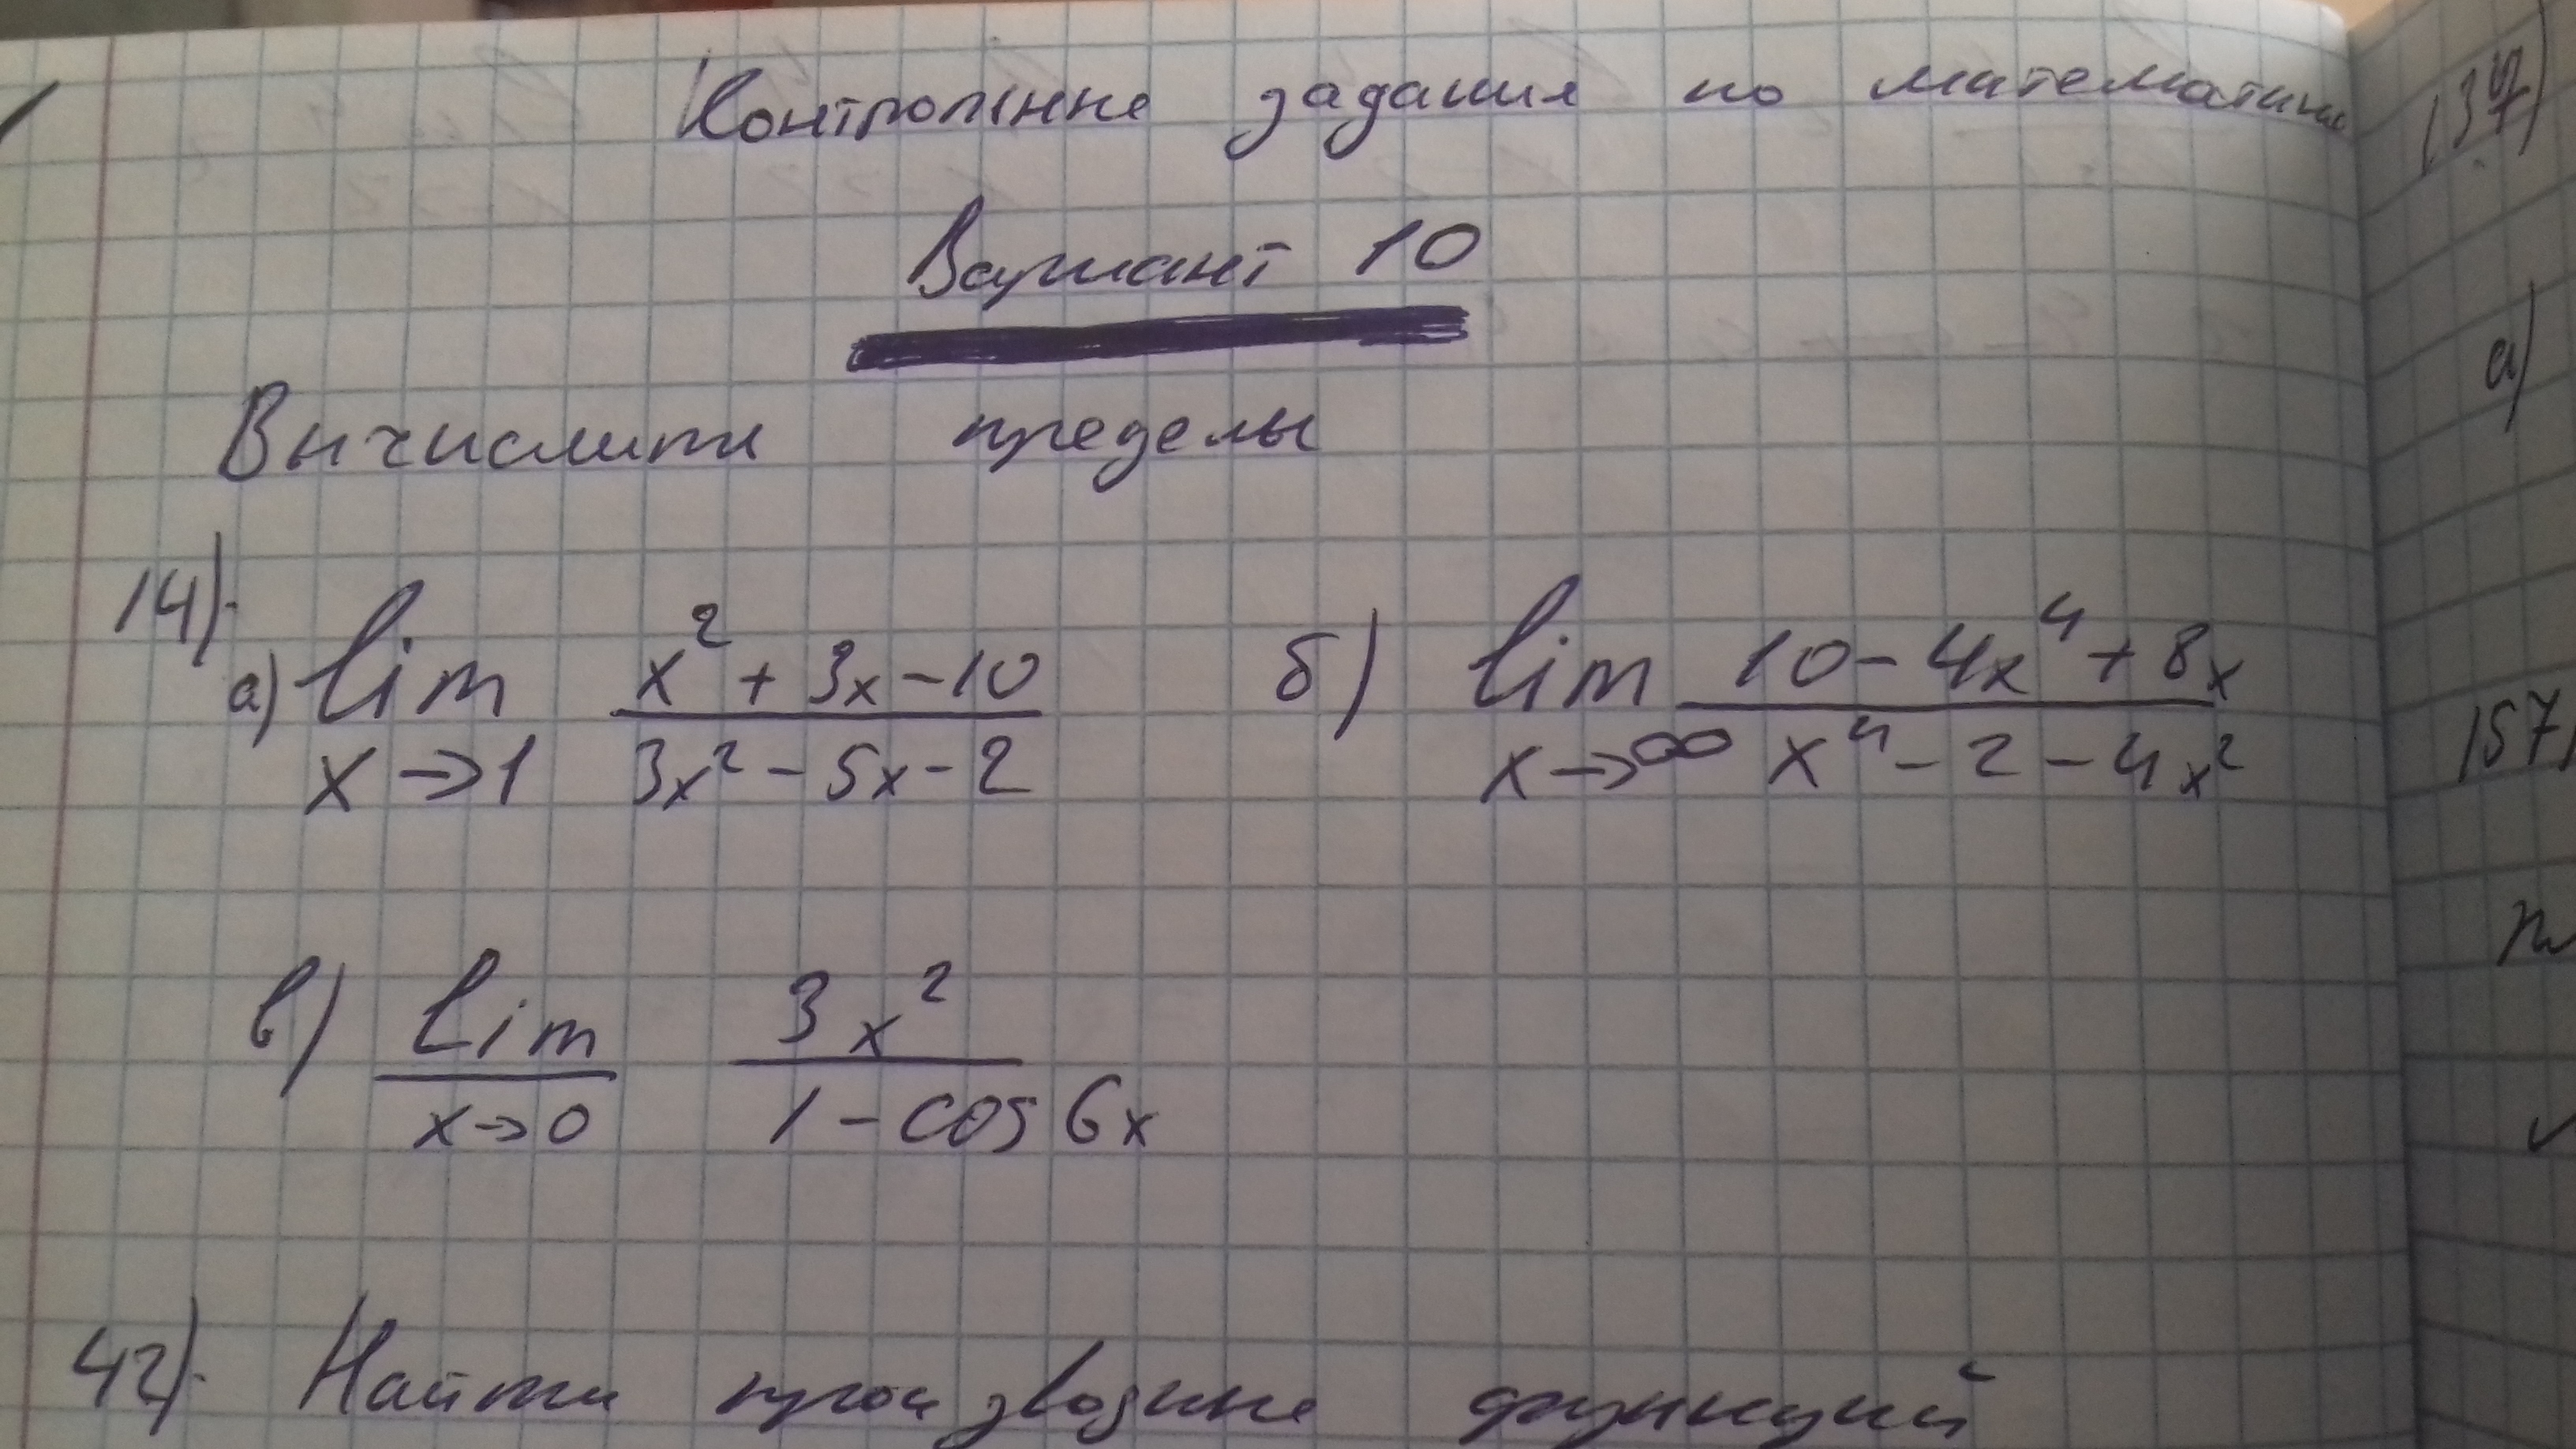 Контрольные задания по математике
Вариант 10
Вычислить пределы
14).
а) lim x→1 (x² + 3x - 10)/(3x² - 5x - 2) б) lim x→∞ (10 - 4x⁴ + 8x)/(x⁴ - 2 - 4x²)
в) lim x→0 3x²/(1 - cos 6x)
42). Найти производные функций
а)
157)